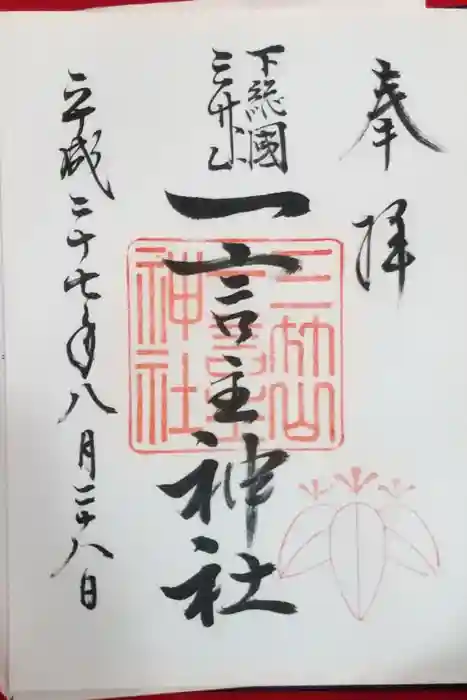 奉拝
下総國
三竹山
一言主神社
三竹山
一言主
神社
平成二十七年八月二十八日